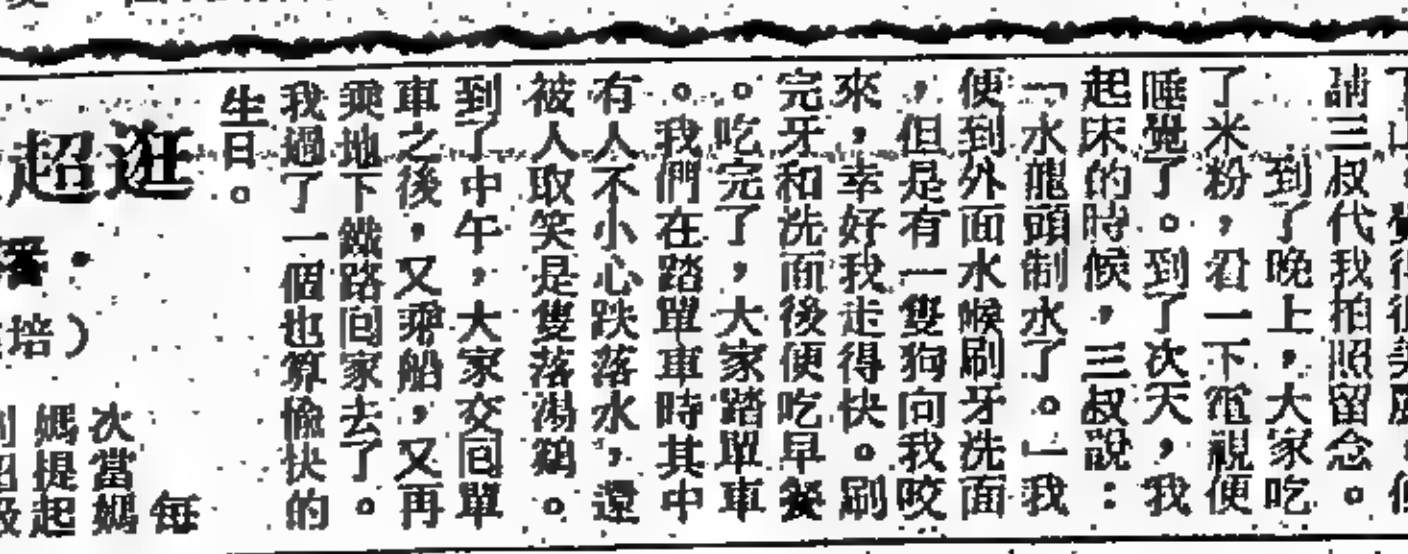 請三叔代我拍照留念。
到了晚上，大家吃
了米粉，看一下電視便
睡覺了。到了次天，我
起床的時候，三叔說：
「水龍頭制水了。」我
便到外面水喉刷牙洗面
，但是有一隻狗向我咬
來，幸好我走得快。刷
完牙和洗面後便吃早餐
。吃完了，大家踏單車
。我們在踏單車時其中
有人不小心跌落水，還
被人取笑是隻落湯鷄。
到了中午，大家交囘單
車之後，又乘船，又再
乘地下鐵路囘家去了。
我過了一個也算愉快的
生日。
逛超
培）
每
次當媽
媽提起